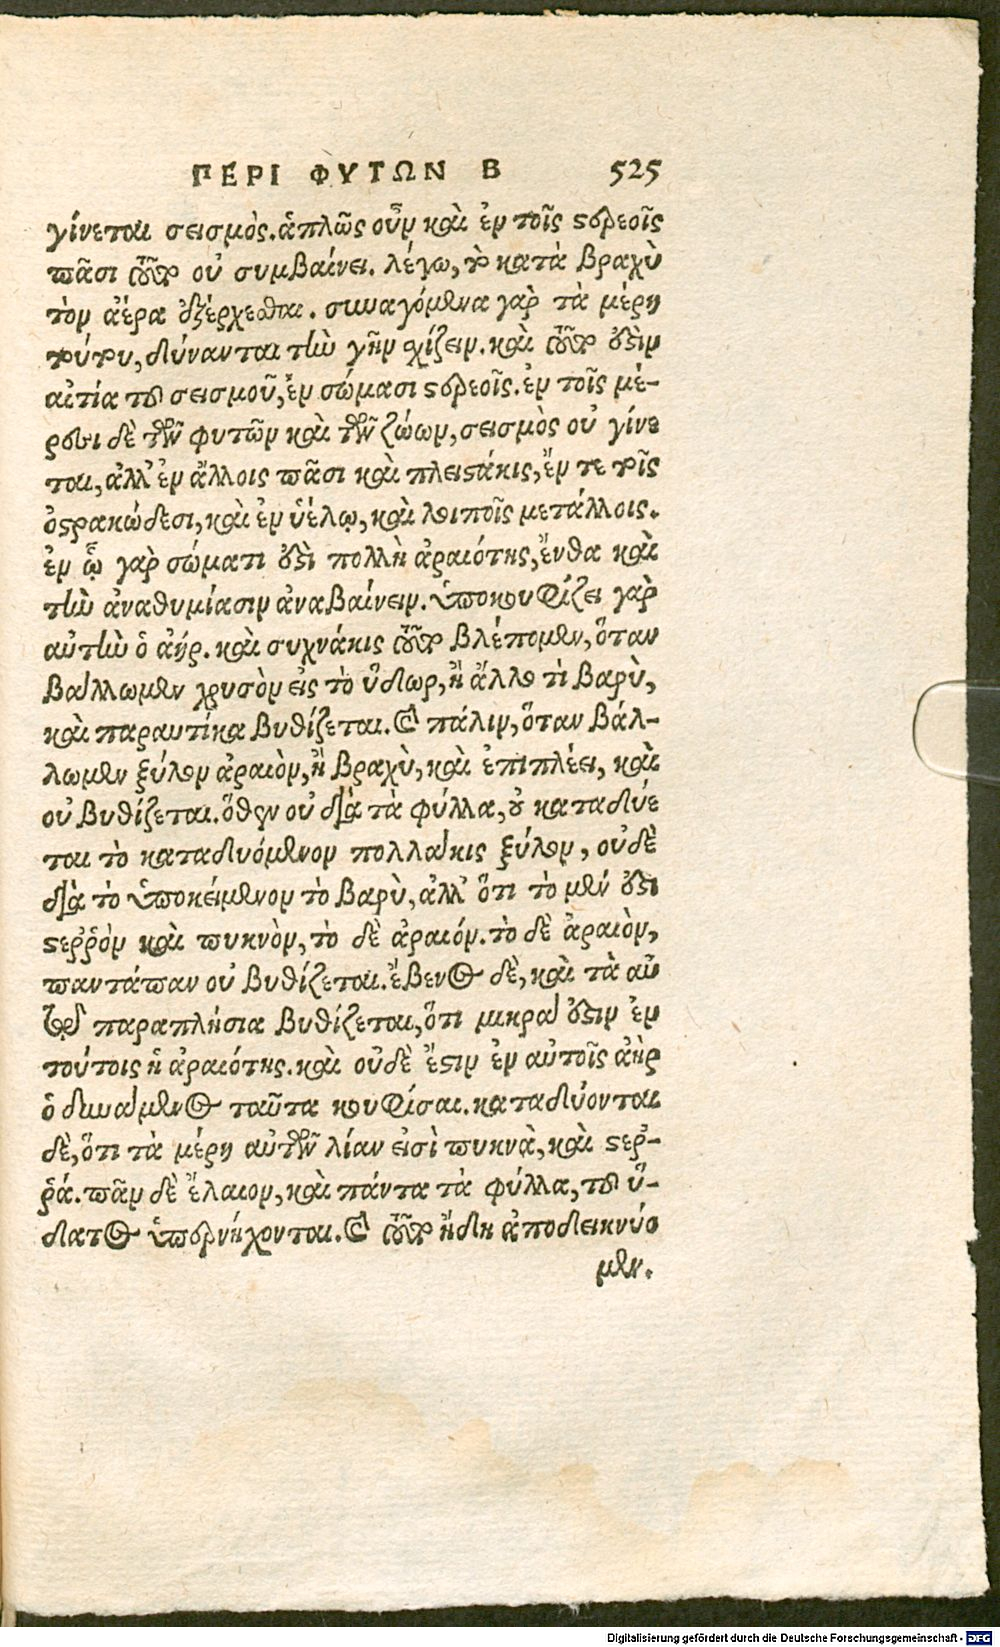 ΠΕΡΙ ΦΥΤΩΝ Β 525
γίνεται σεισμὸς. ἁπλῶς οὖν καὶ ἐν τοῖς στερεοῖς
πᾶσι τοῦτο οὐ συμβαίνει. λέγω, τὸ κατὰ βραχὺ
τὸν ἀέρα ἐξέρχεσθαι. συναγόμενα γὰρ τὰ μέρη
τούτου, δύνανται τὴν γῆν σχίζειν. καὶ τοῦτο ἐστὶν
αἰτία τοῦ σεισμοῦ, ἐν σώμασι στερεοῖς. ἐν τοῖς μέ-
ρεσι δὲ τῶν φυτῶν καὶ τῶν ζώων, σεισμὸς οὐ γίνε
ται, ἀλλ' ἐν ἄλλοις πᾶσι καὶ πλειστάκις, ἔν τε τοῖς
ὀστρακώδεσι, καὶ ἐν ὑέλῳ, καὶ λοιποῖς μετάλλοις.
ἐν ᾧ γὰρ σώματι ἐστὶ πολλὴ ἀραιότης, ἔνθα καὶ
τὴν ἀναθυμίασιν ἀναβαίνειν. ὑποκουφίζει γὰρ
αὐτὴν ὁ ἀήρ. καὶ συχνάκις τοῦτο βλέπομεν, ὅταν
βάλλωμεν χρυσὸν εἰς τὸ ὕδωρ, ἢ ἄλλο τὶ βαρὺ,
καὶ παραυτίκα βυθίζεται. καὶ πάλιν, ὅταν βάλ-
λωμεν ξύλον ἀραιὸν, ἢ βραχὺ, καὶ ἐπιπλέει, καὶ
οὐ βυθίζεται. ὅθεν οὐ διὰ τὰ φύλλα, οὐ καταδύε
ται τὸ καταδυόμενον πολλάκις ξύλον, οὐδὲ
διὰ τὸ ὑποκείμενον τὸ βαρὺ, ἀλλ' ὅτι τὸ μὲν ἐστι
στερρὸν καὶ πυκνὸν, τὸ δὲ ἀραιόν. τὸ δὲ ἀραιὸν,
παντάπαν οὐ βυθίζεται. ἔβενος δὲ, καὶ τὰ αὐ
τῇ παραπλήσια βυθίζεται, ὅτι μικρά ἐστιν ἐν
τούτοις ἡ ἀραιότης. καὶ οὐδὲ ἔστιν ἐν αὐτοῖς ἀὴρ
ὁ δυνάμενος ταῦτα κουφίσαι. καταδύονται
δὲ, ὅτι τὰ μέρη αὐτῶν λίαν εἰσὶ πυκνὰ, καὶ στερ-
ρά. πᾶν δὲ ἔλαιον, καὶ πάντα τὰ φύλλα, τοῦ ὕ-
δατος ὑπερνήχονται. καὶ τοῦτο ἤδη ἀποδεικνύο
μεν.
Digitalisierung gefördert durch die Deutsche Forschungsgemeinschaft - DFG